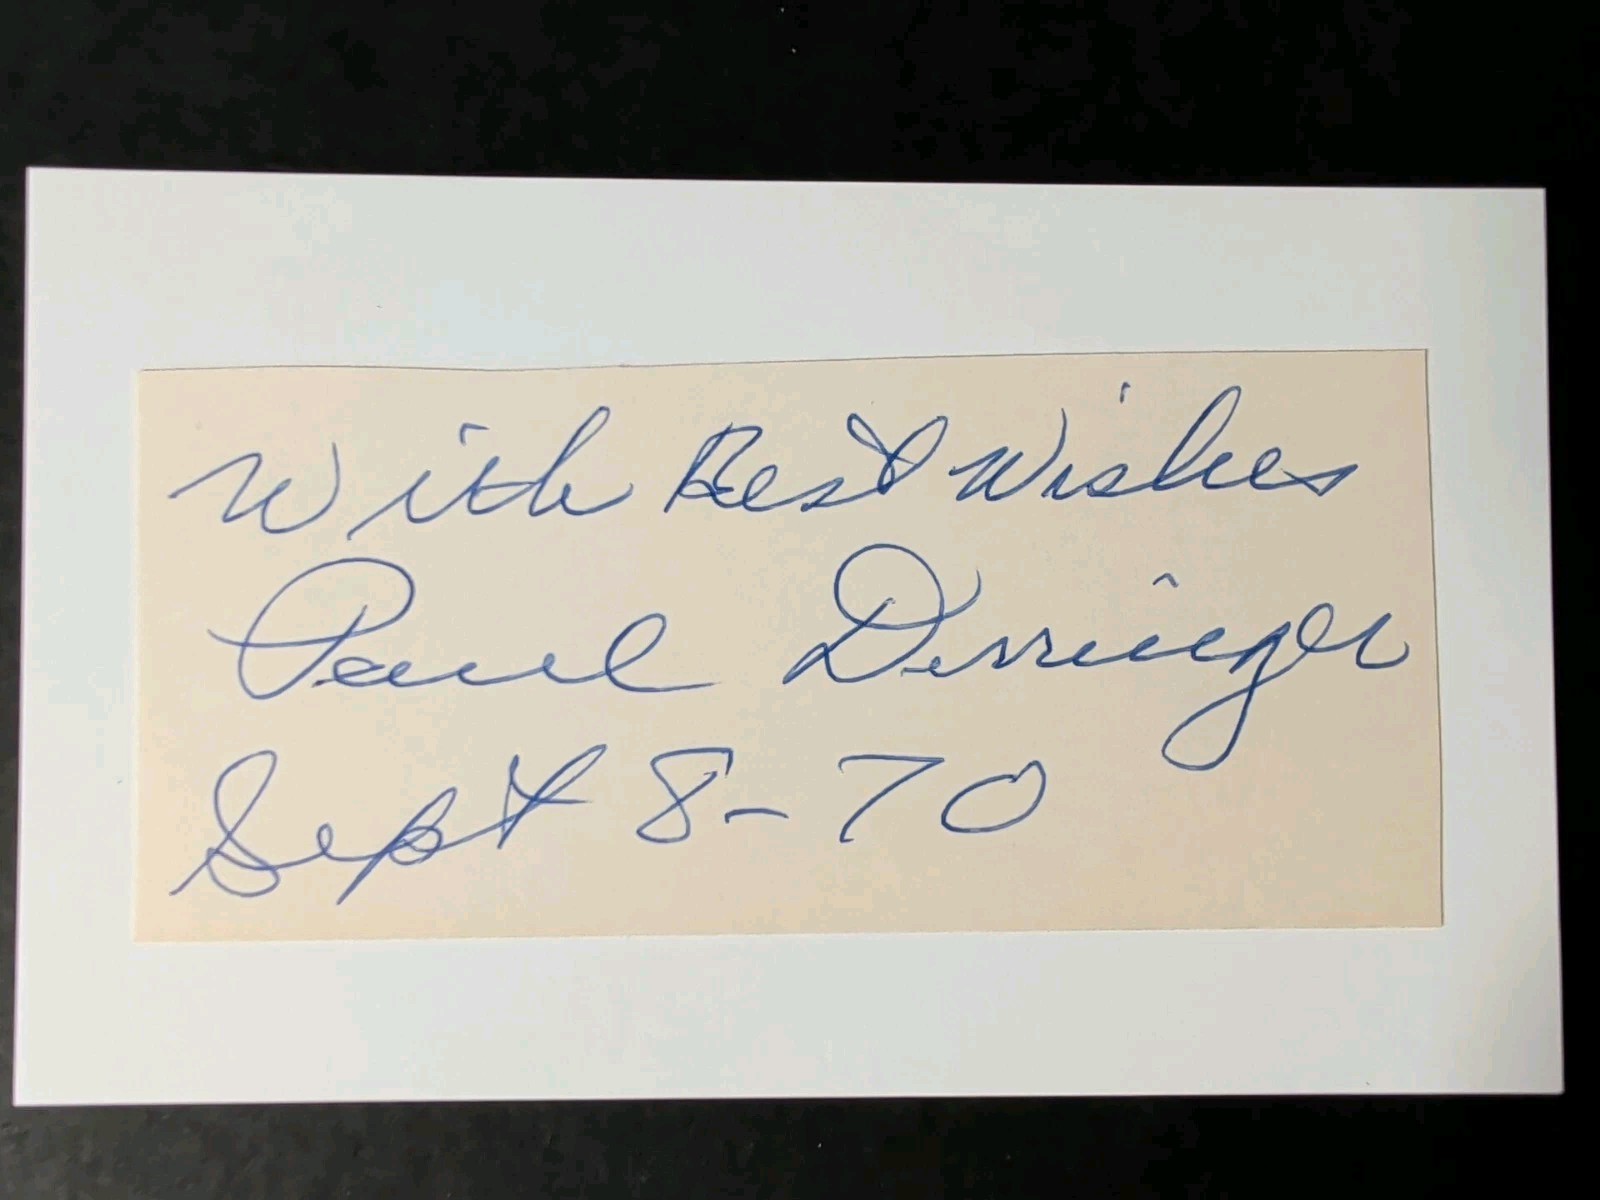 With Best Wishes
Paul Derringer
Sept 8-70